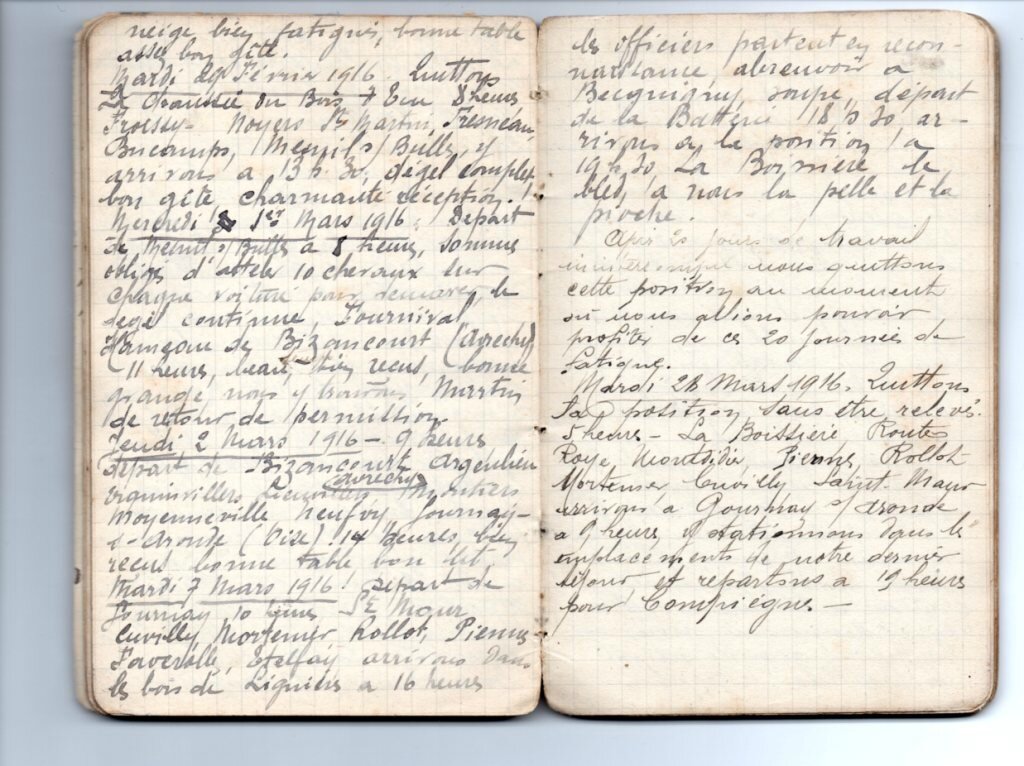 neige, bien fatigués, bonne table
assez bon gîte.
Mardi 29 Février 1916. Quittons
La Chaussée du Bois 7 Ecu 8 heures,
Froissy - Noyers St Martin, Fresneau,
Bucamps, Mesnils/Bulles, y
arrivons a 13 h. 30, dégel complet
bon gîte, charmante réception. !
Mercredi 1er Mars 1916. Depart
de Mesnil s/Bulles a 8 heures, sommes
obligés d'atteler 10 chevaux sur
chaque voiture pour demarer, le
degel continue, Fournival,
Hameau de Bizancourt (avrechy)
(11 heures, beau, bien recus, (bonne
grange nous y trouvons Martin
de retour de permission.
Jeudi 2 Mars 1916 - 9 heures
départ de Bizancourt, argenlieu
avrechy
Moyenneville Neufvy Gournay-
s-aronde (Oise) 14 heures, bien
recus bonne table bon lit,
Mardi 7 Mars 1916. ! Depart de
Gournay 10 heures St Maur
Cuvilly, Mortemer Rollot, Piennes
Faverolle, Etelfay arrivons dans
les bois de Ligniéres a 16 heures
les officiers partent en recon-
naissance, abreuvoir a
Becquigny, soupe, départ
de la Batterie 18 h 30 ar-
rivons a la position a
19 h 30 La Boissiere le
bled, a nous la pelle et la
pioche.
Après 20 jours de travail
ininterrompu nous quittons
cette position au moment
où nous allions pouvoir
profiter de ces 20 journées de
fatigue.
Mardi 28 Mars 1916. Quittons
la position, sans être relevés.
5 heures - La Boissiere, Routes
Roye, Montdidier, Piennes, Rollot
Mortemer Cuvilly Saint-Maur
arrivons a Gournay s/aronde
a 9 heures, y stationnons dans les
emplacements de notre dernier
séjour et repartons a 19 heures
pour Compiégne. -